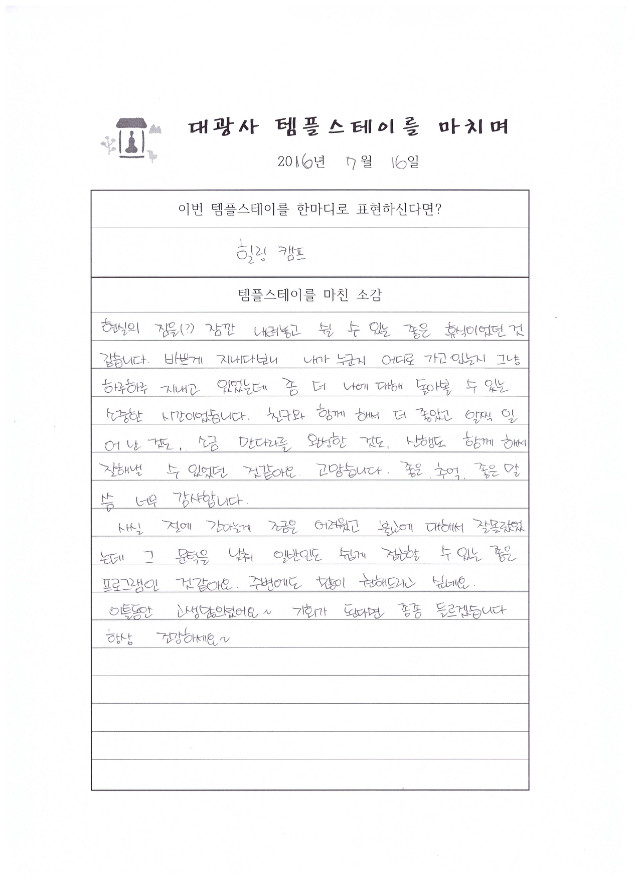 대광사 템플스테이를 마치며
2016년 7월 16일
이번 템플스테이를 한마디로 표현하신다면?
힐링 캠프
템플스테이를 마친 소감
현실의 짐을(?) 잠깐 내려놓고 쉴 수 있는 좋은 휴식이었던 것
같습니다. 바쁘게 지내다보니 내가 누군지 어디로 가고 있는지 그냥
하루하루 지내고 있었는데 좀 더 나에 대해 돌아볼 수 있는
소중한 시간이었습니다. 친구와 함께 해서 더 좋았고 일찍 일
어난 것도, 소금 만다라를 완성한 것도, 산행도 함께 해서
잘해낼 수 있었던 것같아요. 고맙습니다. 좋은 추억, 좋은 말
씀 너무 감사합니다.
사실 절에 간다는게 조금은 어려웠고 불교에 대해서 잘몰랐었
는데 그 문턱을 낮춰 일반인도 쉽게 접근할 수 있는 좋은
프로그램인 것같아요. 주변에도 많이 권해드리고 싶네요.
이틀동안 고생많으셨어요~ 기회가 된다면 종종 들르겠습니다
항상 건강하세요~